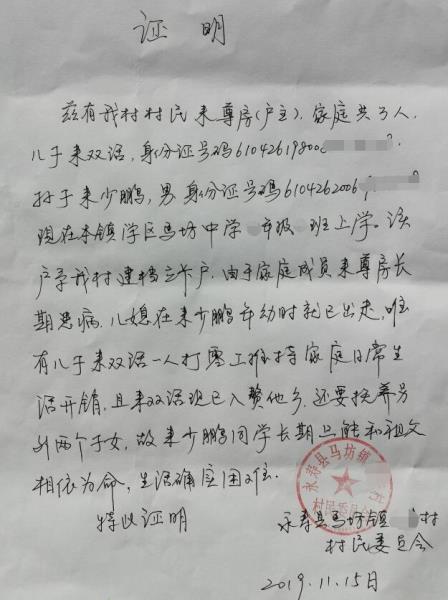 证明
兹有我村村民来尊房(户主),家庭共3人,
儿子来双话,身份证号码6104261980
孙子来少鹏,男身份证号码6104262006
现在本镇学区马坊中学 年级 班上学。该
户系我村建档立卡户,由于家庭成员来尊房长
期患病,儿媳在来少鹏年幼时就已出走,唯
有儿子来双话一人打零工维持家庭日常生
活开销,且来双话现已入赘他乡,还要扶养另
外两个子女,故来少鹏同学长期只能和祖父
相依为命,生活确实困难.
特此证明
永寿县马坊镇 村
村民委员会
2019.11.15日
永寿县马坊镇 村
村民委员会